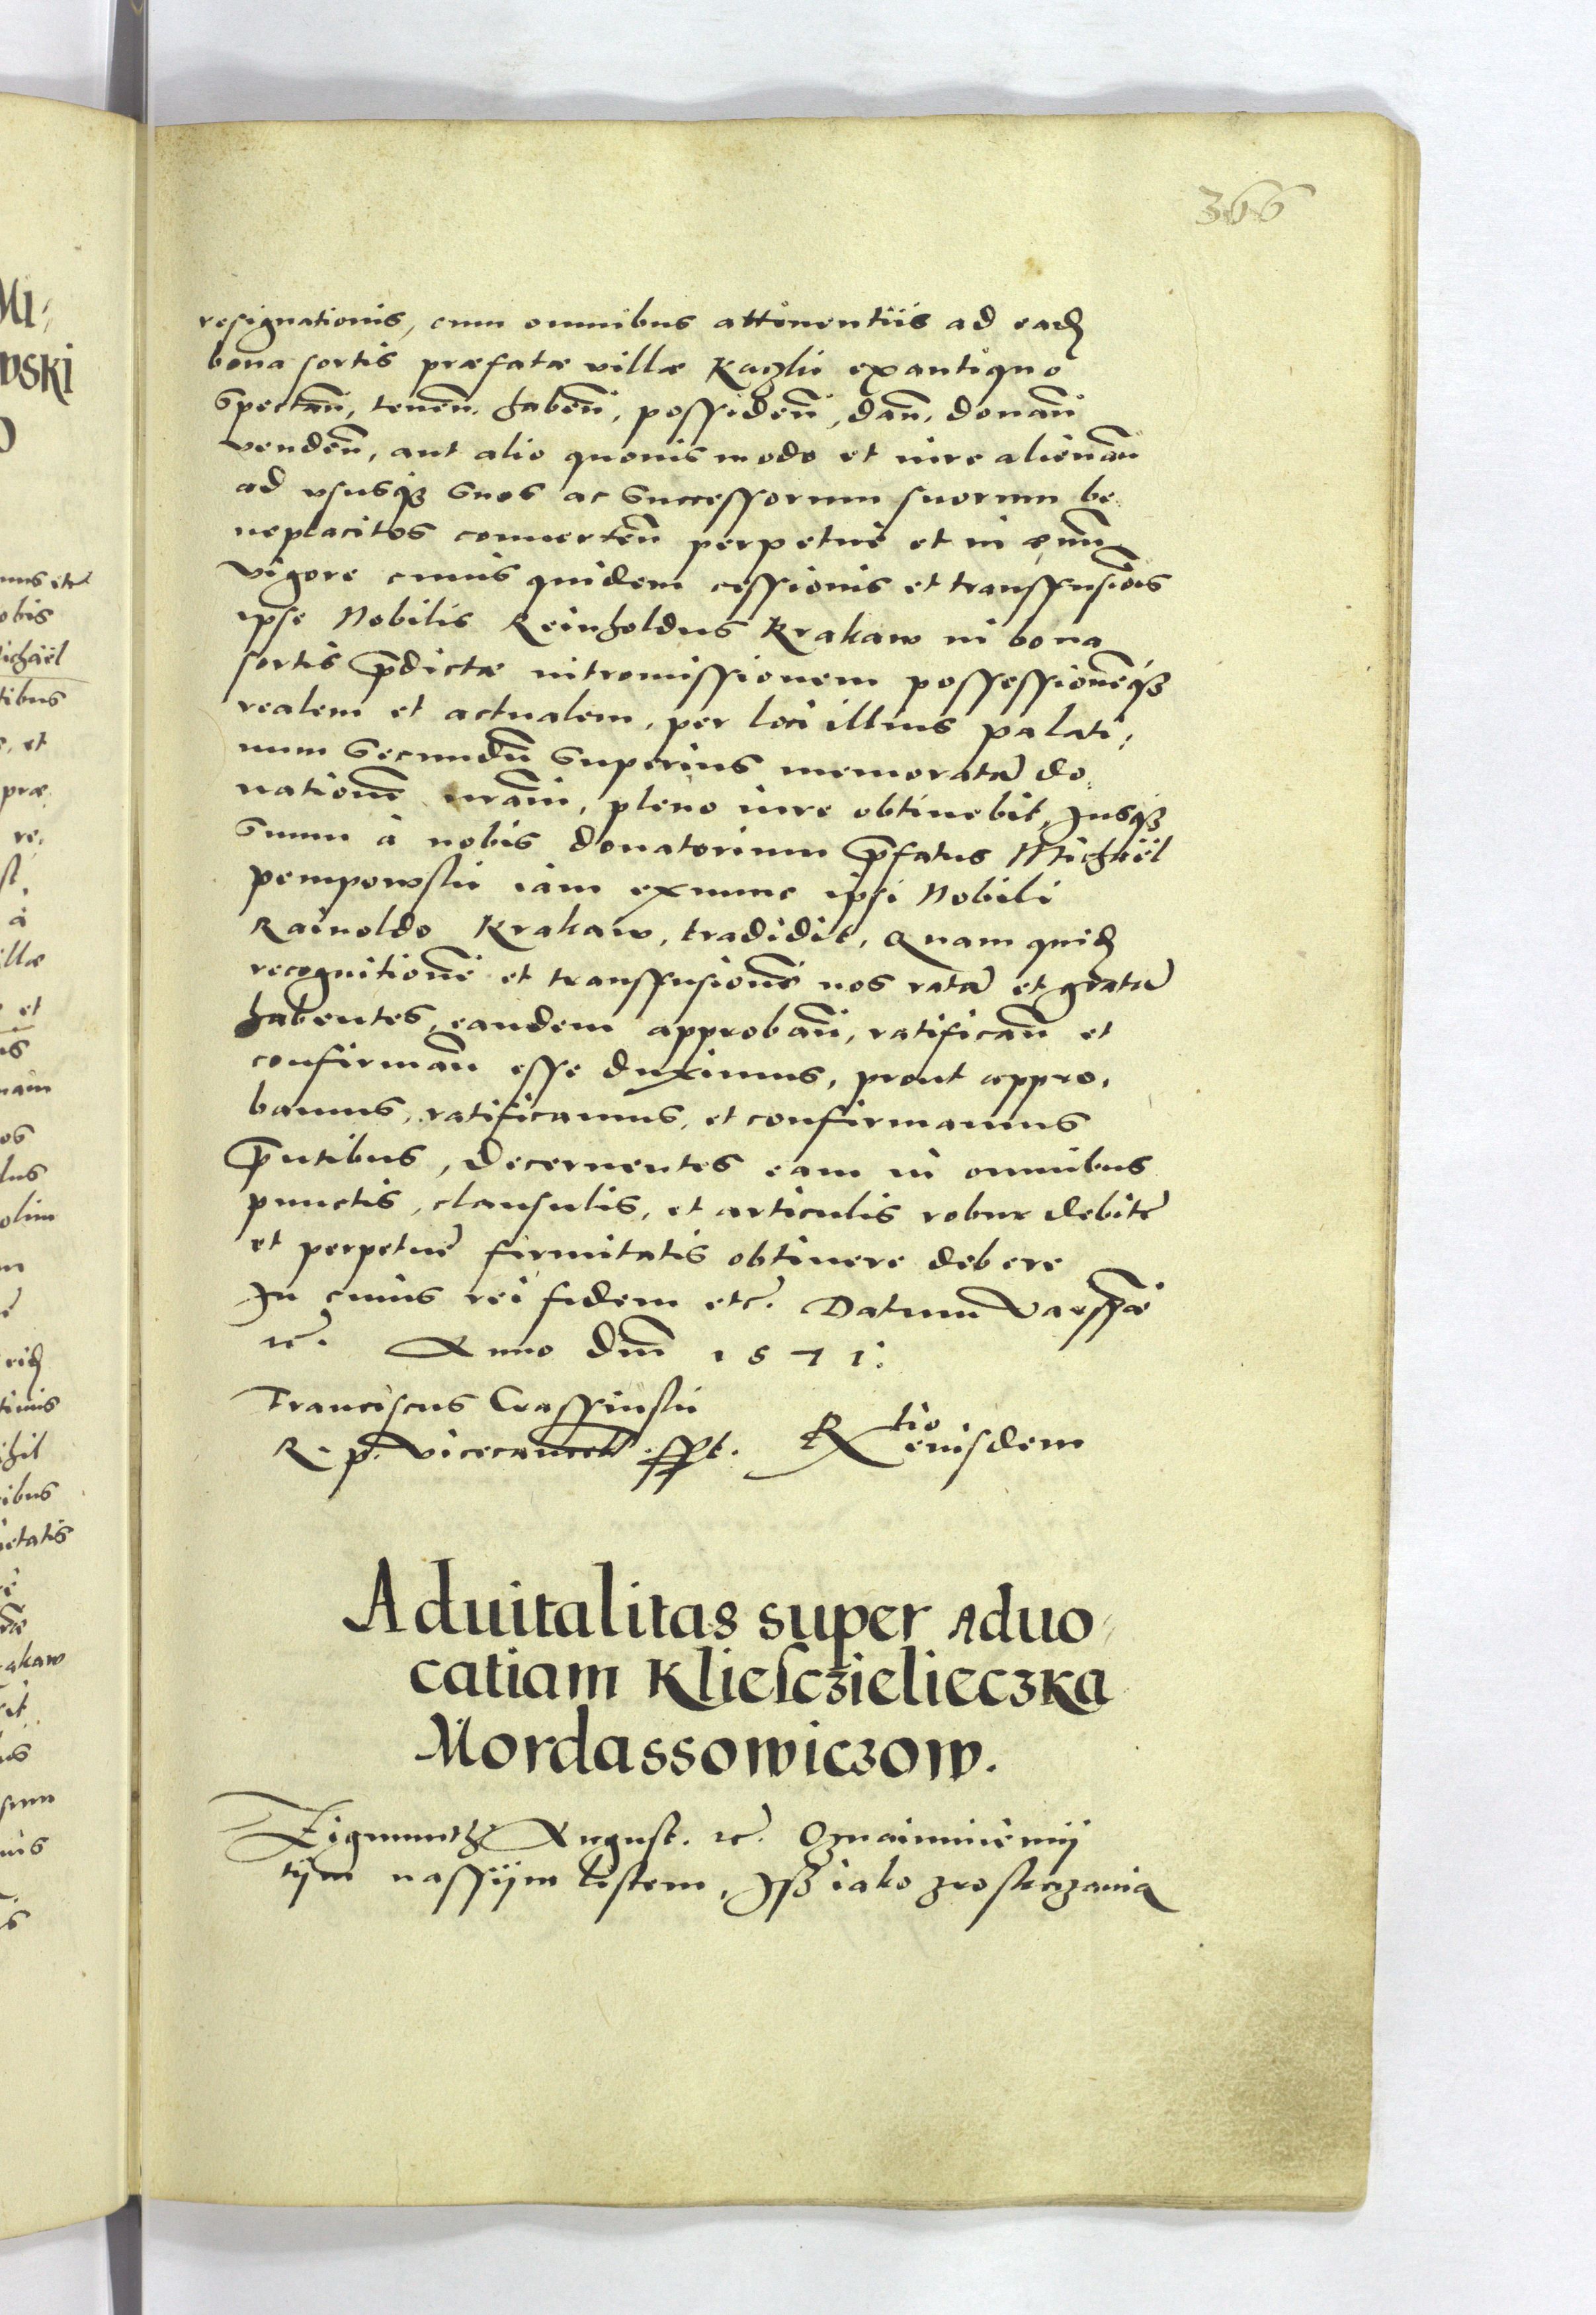 366
resignationis, cum omnibus attinentiis ad eadē
bona sortis præfatæ villæ Kaczki ex antiquo
spectañ, teneñ. habeñ, possideñ, dañ, donañ
vendeñ, aut alio quouis modo et iure alienañ
ad vsusq̃ suos ac successorum suorum be
neplacitos conuerteñ perpetue et in æuū
vigore cuius quidem cessionis et transfusiōis
ipse Nobilis Reinholdus Krakaw in bona
sortis p̃dictæ intromissionem possessionēq̃
realem et actualem, per loci illius palati,
num secundū superius memoratā do
nationē nr̃am, pleno iure obtinebit, Jusq̃
suum à nobis donatorium p̃fatus Michaël
pempowski iam ex nunc ipsi Nobili
Rainoldo Krakaw, tradidit, Quam quidē
recognitionē et transfusionē nos ratā et gratā
habentes, eandem approbañ, ratificañ et
confirmañ esse duximus, prout appro,
bamus, ratificamus, et confirmamus
p̃ntibus, decernentes eam in omnibus
punctis, clausulis, et articulis robur debitę
et perpetuę firmitatis obtinere debere
In cuius rei fidem etc. Datum Varssæ
etc. Anno dnī 1571.
Franciscus Crassinski
R. p. vicecancell. sspt. Rtio eiusdem
Aduitalitas super Aduo
catiam Klieſczielieczka
Mordassowiczow.
Zigmunth August. etc. Oznaimuiemÿ
tÿm nassÿm listem, Jsz iako